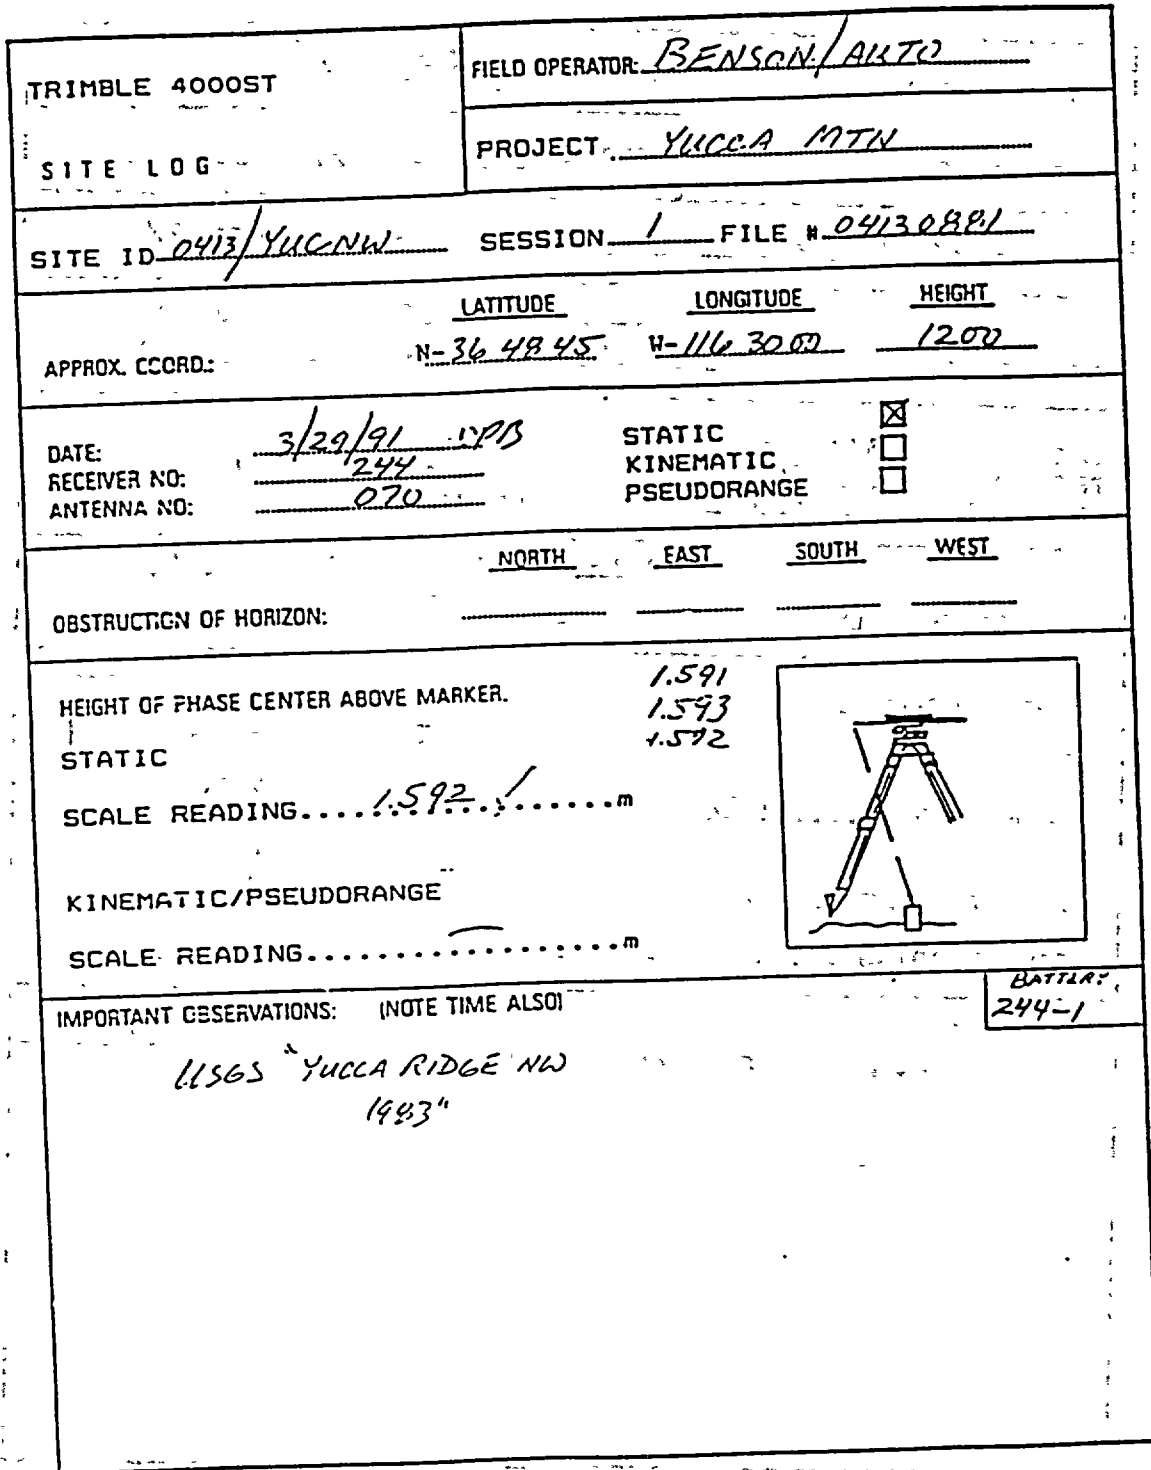 TRIMBLE 4000ST
SITE LOG
FIELD OPERATOR: BENSON/AUTO
PROJECT YUCCA MTN
SITE ID 0413/YUCNW SESSION 1 FILE # 04130881
LATITUDE LONGITUDE HEIGHT
APPROX. COORD.: N-36 48 45 W-116 30 00 1200
DATE: 3/29/91
RECEIVER NO: 244
ANTENNA NO: 070
STATIC ☒
KINEMATIC ☐
PSEUDORANGE ☐
NORTH EAST SOUTH WEST
OBSTRUCTION OF HORIZON:
HEIGHT OF PHASE CENTER ABOVE MARKER.
1.591
1.593
1.592
STATIC
SCALE READING....1.592.......m
KINEMATIC/PSEUDORANGE
SCALE READING..................m
IMPORTANT OBSERVATIONS: (NOTE TIME ALSO)
BATTERY
244-1
USGS "YUCCA RIDGE NW
1983"